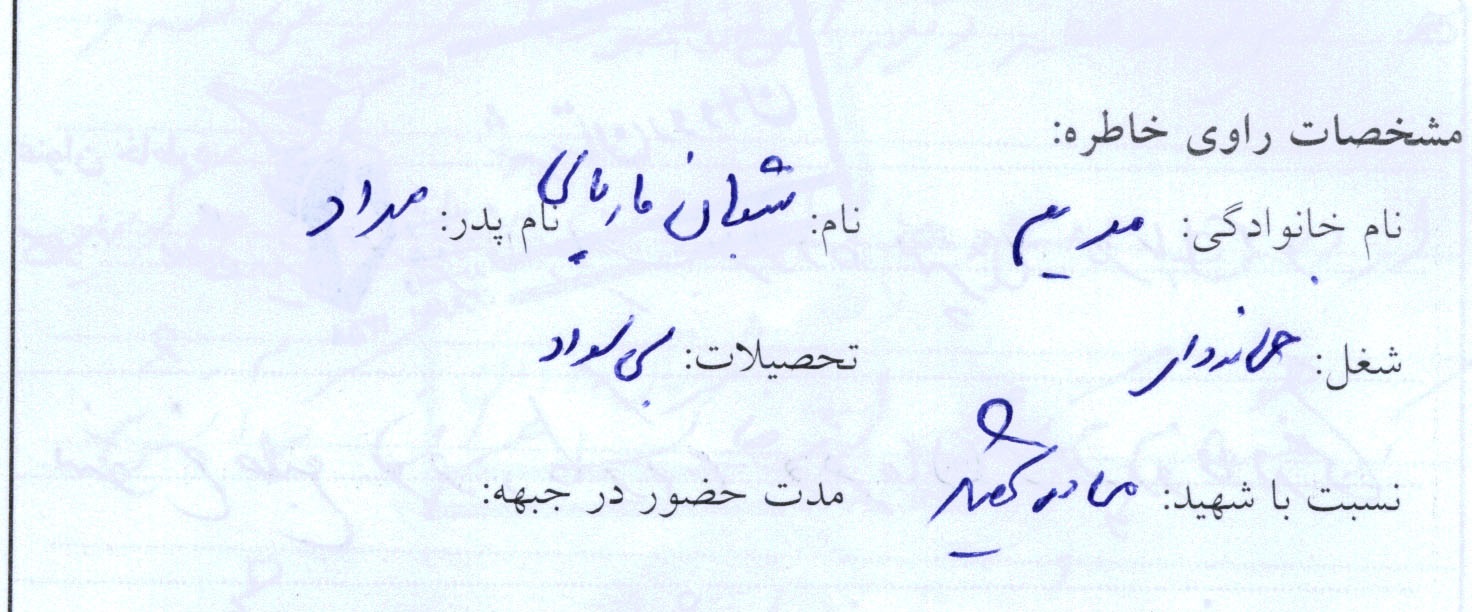 مشخصات راوی خاطره:
نام خانوادگی: مریم نام: شعبان نام پدر: مراد
شغل: خانه‌دار تحصیلات: بی سواد
نسبت با شهید: مادر شهید مدت حضور در جبهه: